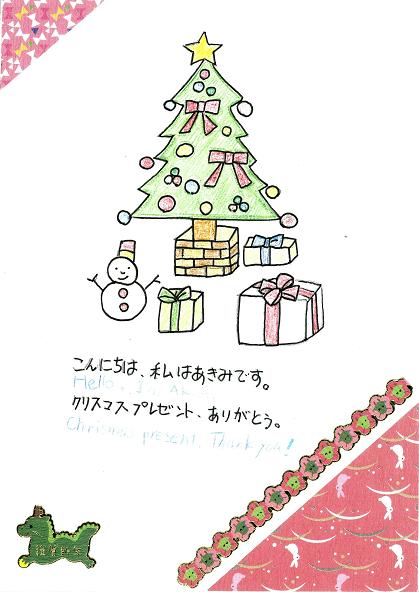 こんにちは、私はあきみです。
Hello, I'm Akimi
クリスマスプレゼント、ありがとう。
Chrismas present, Thank you!
謹賀新年